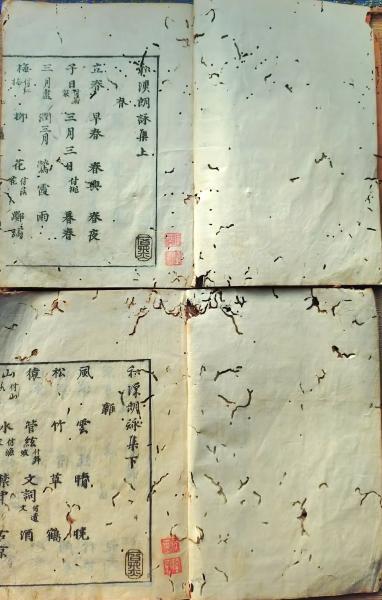 和漢朗詠集上
春
立春 早春 春興 春夜
子日 付若菜 三月三日 付桃 暮春
三月盡 潤三月 鶯 霞 雨
梅 付紅梅 柳 花 付落花 躑躅
和漢朗詠集下
雜
風 雲 晴 暁
松 竹 草 鶴
猿 管絃 付舞妓 文詞 付遺文 酒
山 付山水 水 付漁父